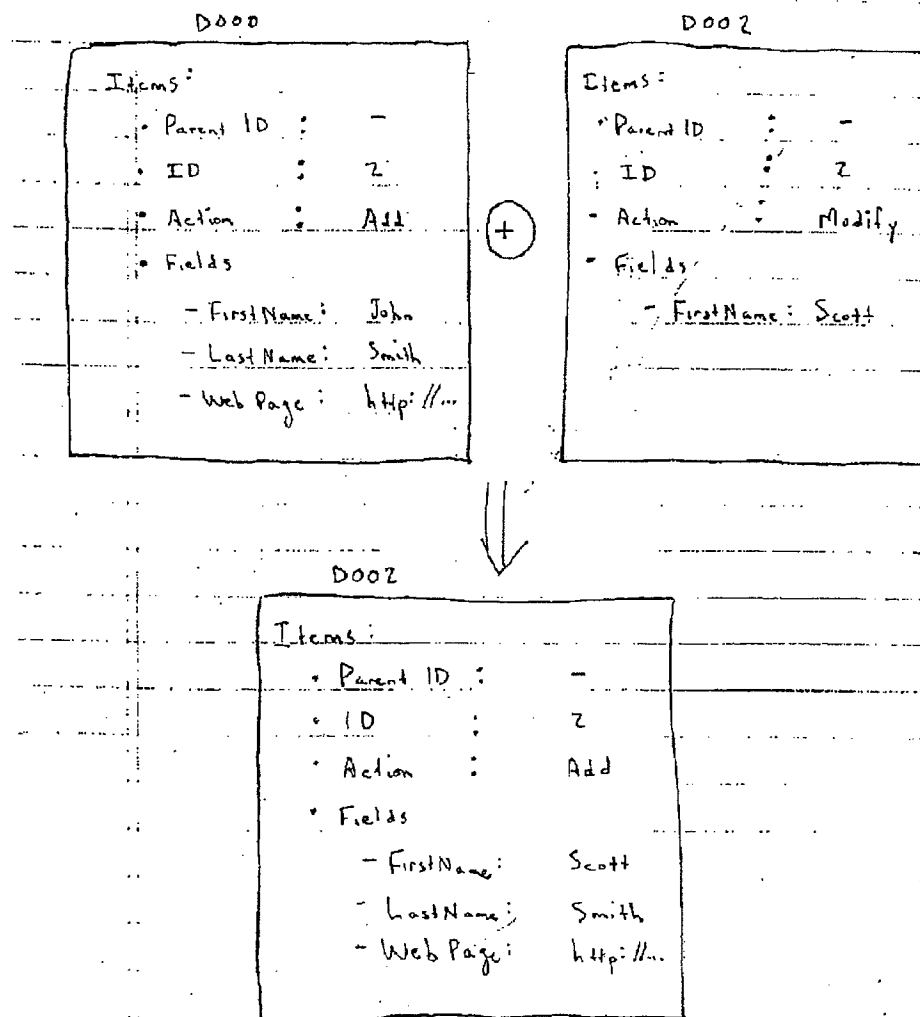 D000
Items:
• Parent ID : -
• ID : 2
• Action : Add
• Fields
- FirstName: John
- LastName: Smith
- Web Page: http://...
+
D002
Items:
• Parent ID : -
• ID : 2
- Action : Modify
- Fields
- FirstName: Scott
D002
Items:
• Parent ID : -
• ID : 2
• Action : Add
• Fields
- FirstName: Scott
- LastName: Smith
- Web Page: http://...